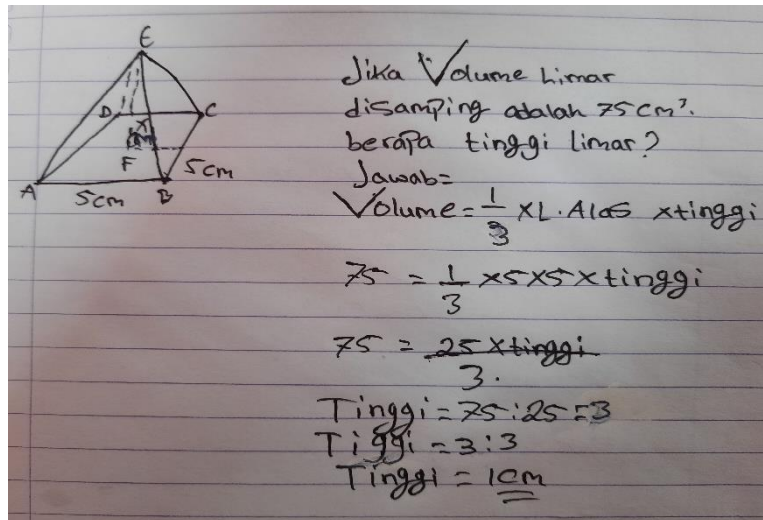 E
D
C
F
A
B
5cm
5cm
Jika Volume Limar
disamping adalah 75 cm³.
berapa tinggi limar?
Jawab=
Volume = 1/3 x L. Alas x tinggi
75 = 1/3 x 5 x 5 x tinggi
75 = 25 x tinggi / 3.
Tinggi = 75 : 25 = 3
Tiggi = 3 : 3
Tinggi = 1cm